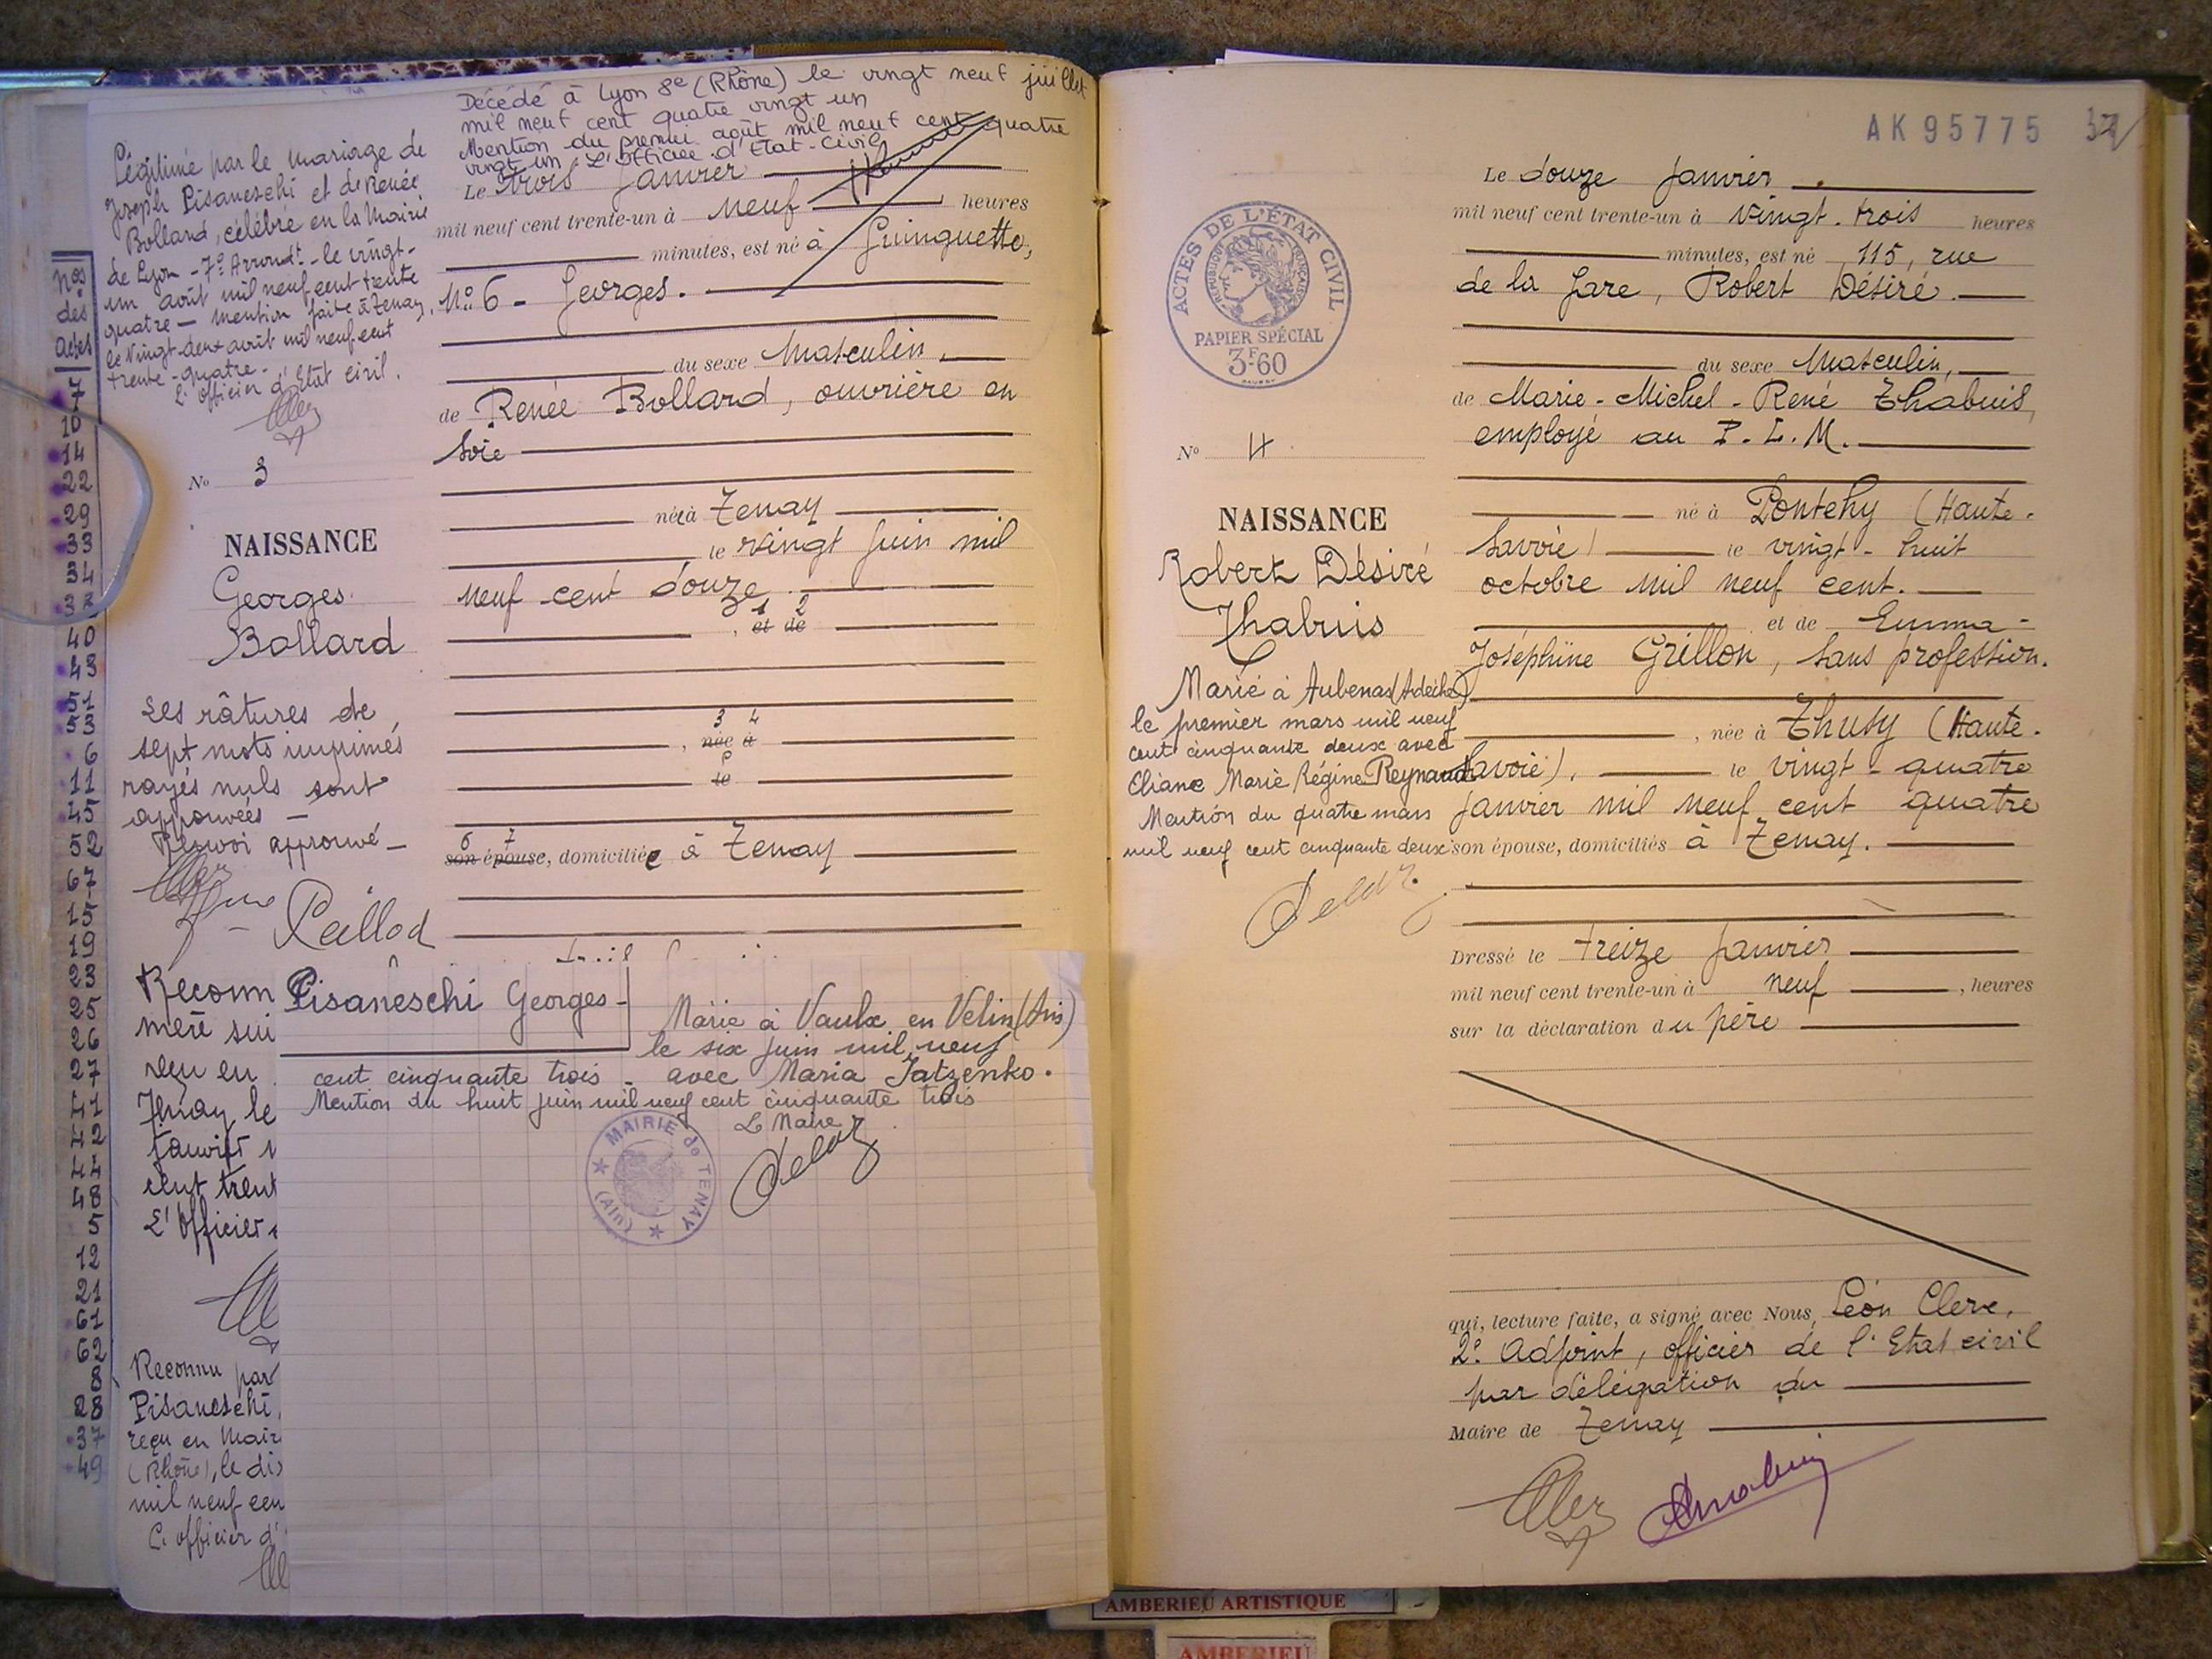 Décédé à Lyon 8e (Rhône) le vingt neuf juillet
mil neuf cent quatre vingt un
Mention du premier août mil neuf cent quatre
vingt un. L'officier d'Etat-Civil
Légitimé par le mariage de
Joseph Pisaneschi et de Renée
Bollard, célébré en la Mairie
de Lyon - 7e Arrondt - le vingt-
un août mil neuf cent trente
quatre - mention faite à Tenay,
le vingt-deux août mil neuf cent
trente-quatre -
L'officier d'Etat civil.
Nos
des
actes
7
10
14
22
29
33
34
37
40
43
51
53
6
11
45
52
67
15
19
23
25
26
27
41
42
44
48
5
12
21
61
62
8
28
37
49
No 3
NAISSANCE
Georges
Bollard
Les râtures de
sept mots imprimés
rayés nuls sont
approuvées -
Renvoi approuvé -
Paillod
Le trois Janvier
mil neuf cent trente-un à neuf heures
minutes, est né à Guinguette,
No 6 - Georges.
du sexe Masculin,
de Renée Bollard, ouvrière en
soie
née à Tenay
le vingt Juin mil
neuf cent douze
1 2
, et de
3 4
, née à
le
6 7
son épouse, domiciliée à Tenay
Reconn
mère sui
reçu en
Tenay le
Janvier
cent trent
L'Officier
Pisaneschi Georges -
Marié à Vaulx en Velin (Ain)
le six juin mil neuf
cent cinquante trois - avec Maria Jatzenko.
Mention du huit juin mil neuf cent cinquante trois
Le Maire
MAIRIE de TENAY
(Ain)
Reconnu par
Pisaneschi,
reçu en Mair
(Rhône), le di
mil neuf cen
L'officier d'
AK95775 37
ACTES DE L'ÉTAT CIVIL
RÉPUBLIQUE FRANÇAISE
PAPIER SPÉCIAL
3F60
No 4
NAISSANCE
Robert Désiré
Thabuis
Marié à Aubenas (Ardèche)
le premier mars mil neuf
cent cinquante deux avec
Eliane Marie Régine Reynaud
Mention du quatre mars
mil neuf cent cinquante deux
Le douze Janvier
mil neuf cent trente-un à vingt-trois heures
minutes, est né, 115, rue
de la Gare, Robert Désiré.
du sexe Masculin,
de Marie-Michel-René Thabuis,
employé au P.L.M.
né à Pontchy (Haute-
Savoie) le vingt-huit
octobre mil neuf cent.
et de Emma-
Joséphine Grillon, sans profession.
, née à Thusy (Haute-
Savoie), le vingt-quatre
Janvier mil neuf cent quatre
son épouse, domiciliés à Tenay.
Dressé le treize Janvier
mil neuf cent trente-un à neuf, heures
sur la déclaration du père
qui, lecture faite, a signé avec Nous, Léon Clerc,
2e Adjoint, officier de l'Etat civil
par délégation du
Maire de Tenay
AMBERIEU ARTISTIQUE
AMBERIEU